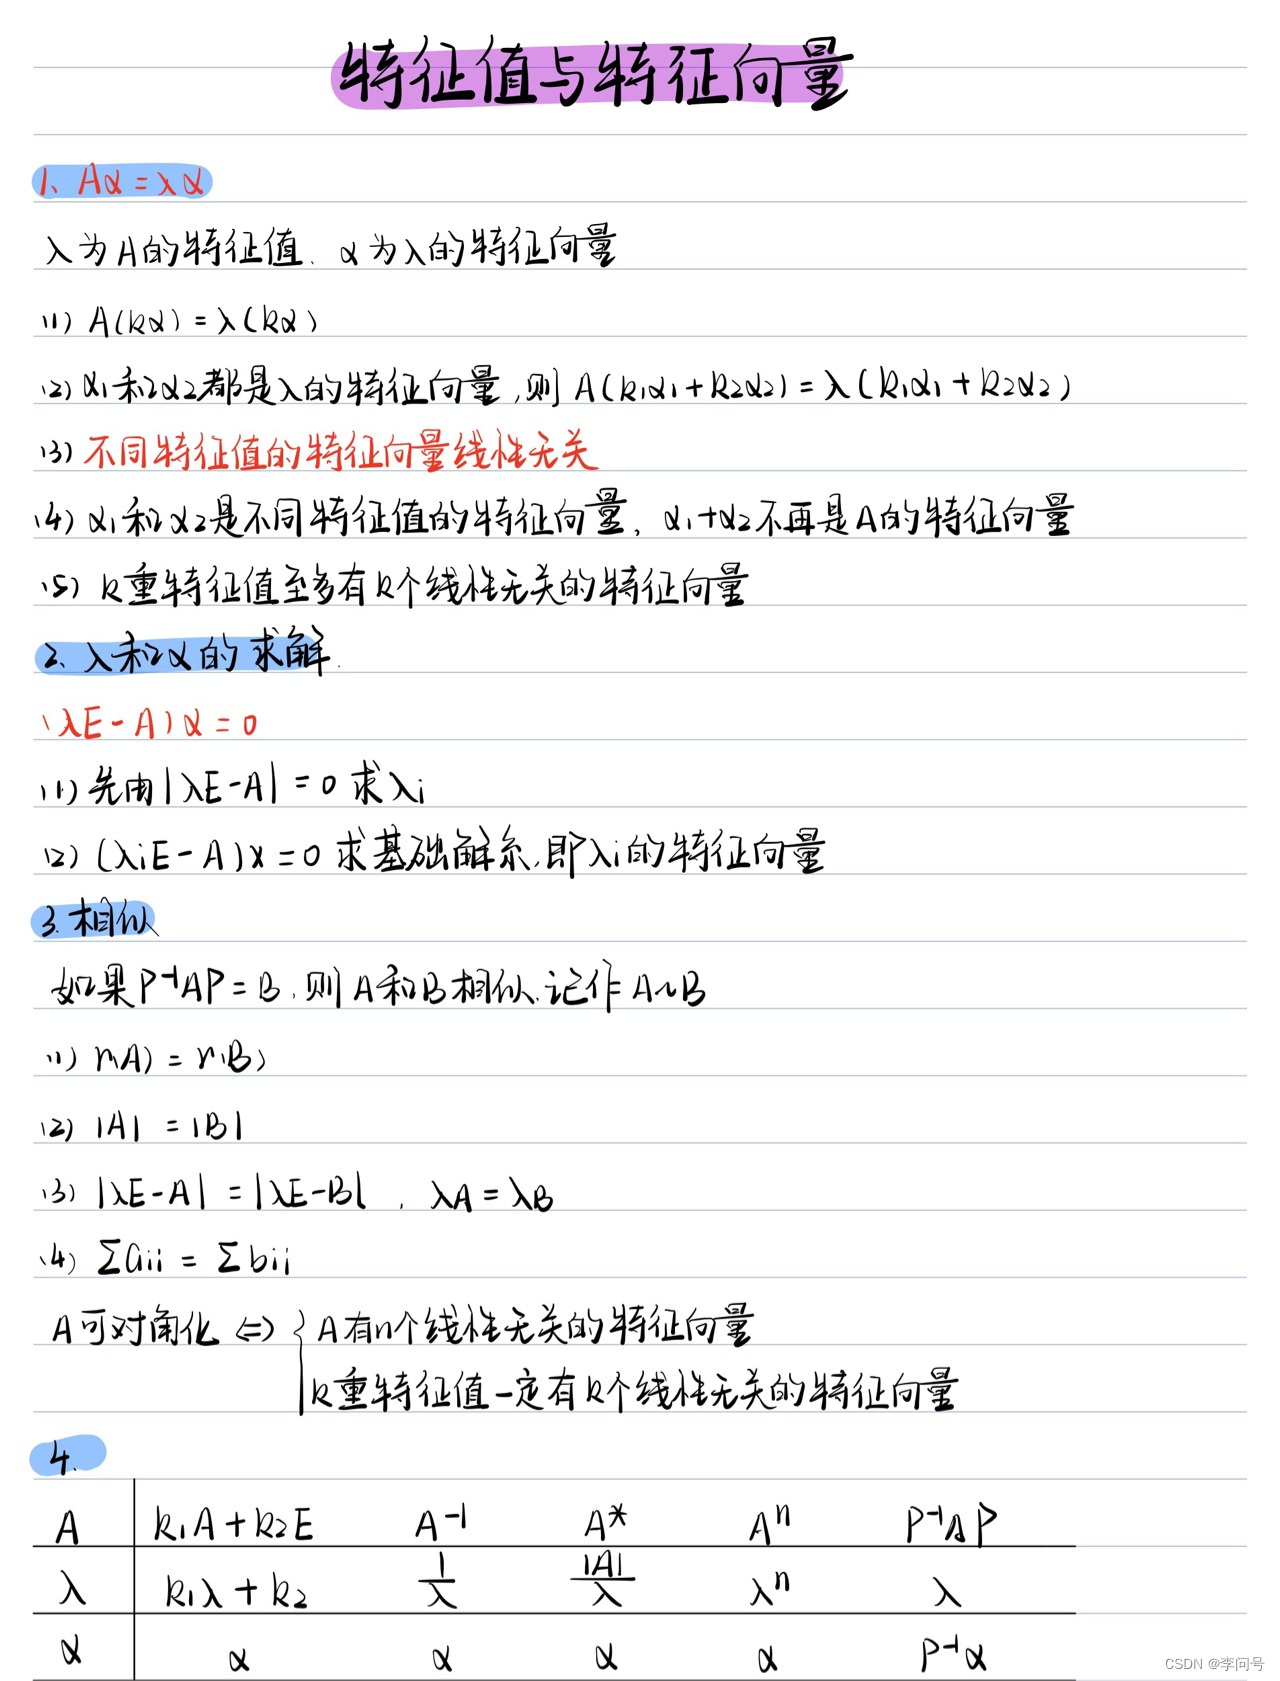 特征值与特征向量
1、Aα=λα
λ为A的特征值、α为λ的特征向量
(1) A(kα)=λ(kα)
(2) α1和α2都是λ的特征向量,则 A(k1α1+k2α2)=λ(k1α1+k2α2)
(3) 不同特征值的特征向量线性无关
(4) α1和α2是不同特征值的特征向量, α1+α2不再是A的特征向量
(5) k重特征值至多有k个线性无关的特征向量
2、λ和α的求解.
(λE-A)α=0
(1) 先由|λE-A|=0 求λi
(2) (λiE-A)x=0 求基础解系,即λi的特征向量
3.相似
如果P⁻¹AP=B,则A和B相似,记作A~B
(1) r(A)=r(B)
(2) |A|=|B|
(3) |λE-A|=|λE-B| , λA=λB
(4) Σaii=Σbii
A可对角化 ⇔ { A有n个线性无关的特征向量
k重特征值一定有k个线性无关的特征向量
4.
A k1A+k2E A⁻¹ A* Aⁿ P⁻¹AP
λ k1λ+k2 1/λ |A|/λ λⁿ λ
α α α α α P⁻¹α
CSDN @李问号